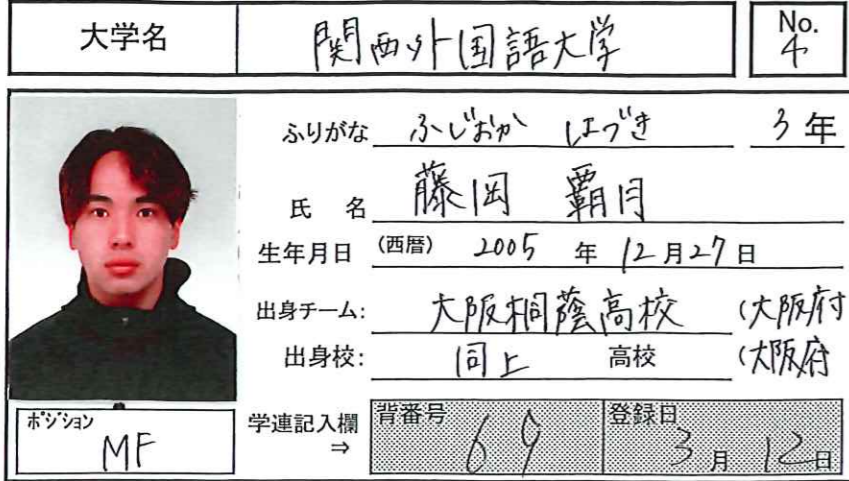 大学名 関西外国語大学 No.4
ふりがな ふじおか はづき 3年
氏 名 藤岡 覇月
生年月日 (西暦) 2005 年 12月27日
出身チーム: 大阪桐蔭高校 (大阪府
出身校: 同上 高校 (大阪府
ポジション MF
学連記入欄 ⇒ 背番号 69 登録日 3月 12日